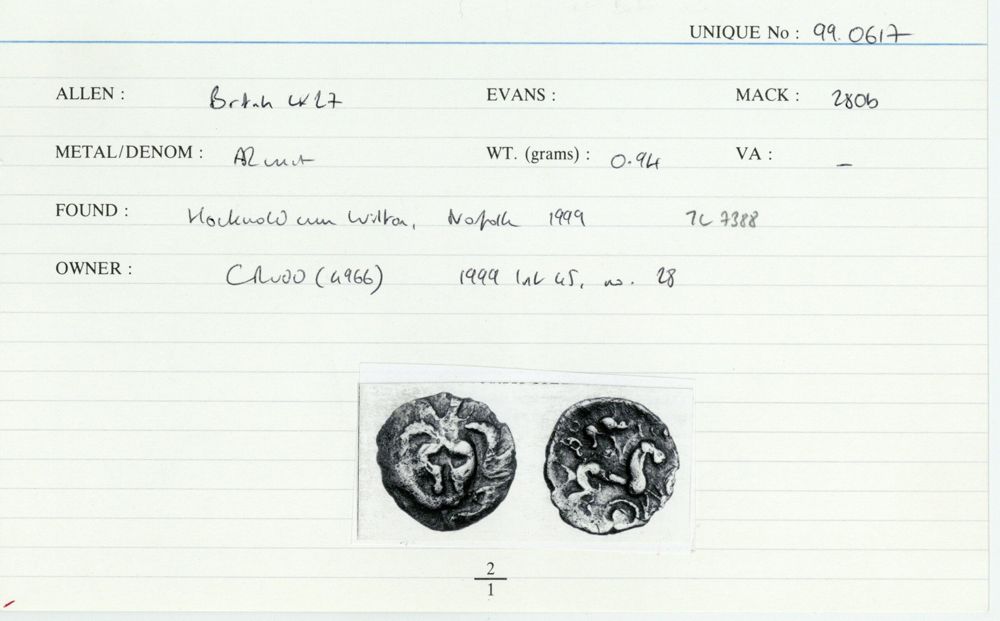 UNIQUE No : 99.0617
ALLEN : British LX27 EVANS : MACK : 280b
METAL/DENOM : AR unit WT. (grams) : 0.94 VA : –
FOUND : Hockwold cum Wilton, Norfolk 1999 TC 7388
OWNER : CRUDD (4966) 1999 List 45, no. 28
2
1